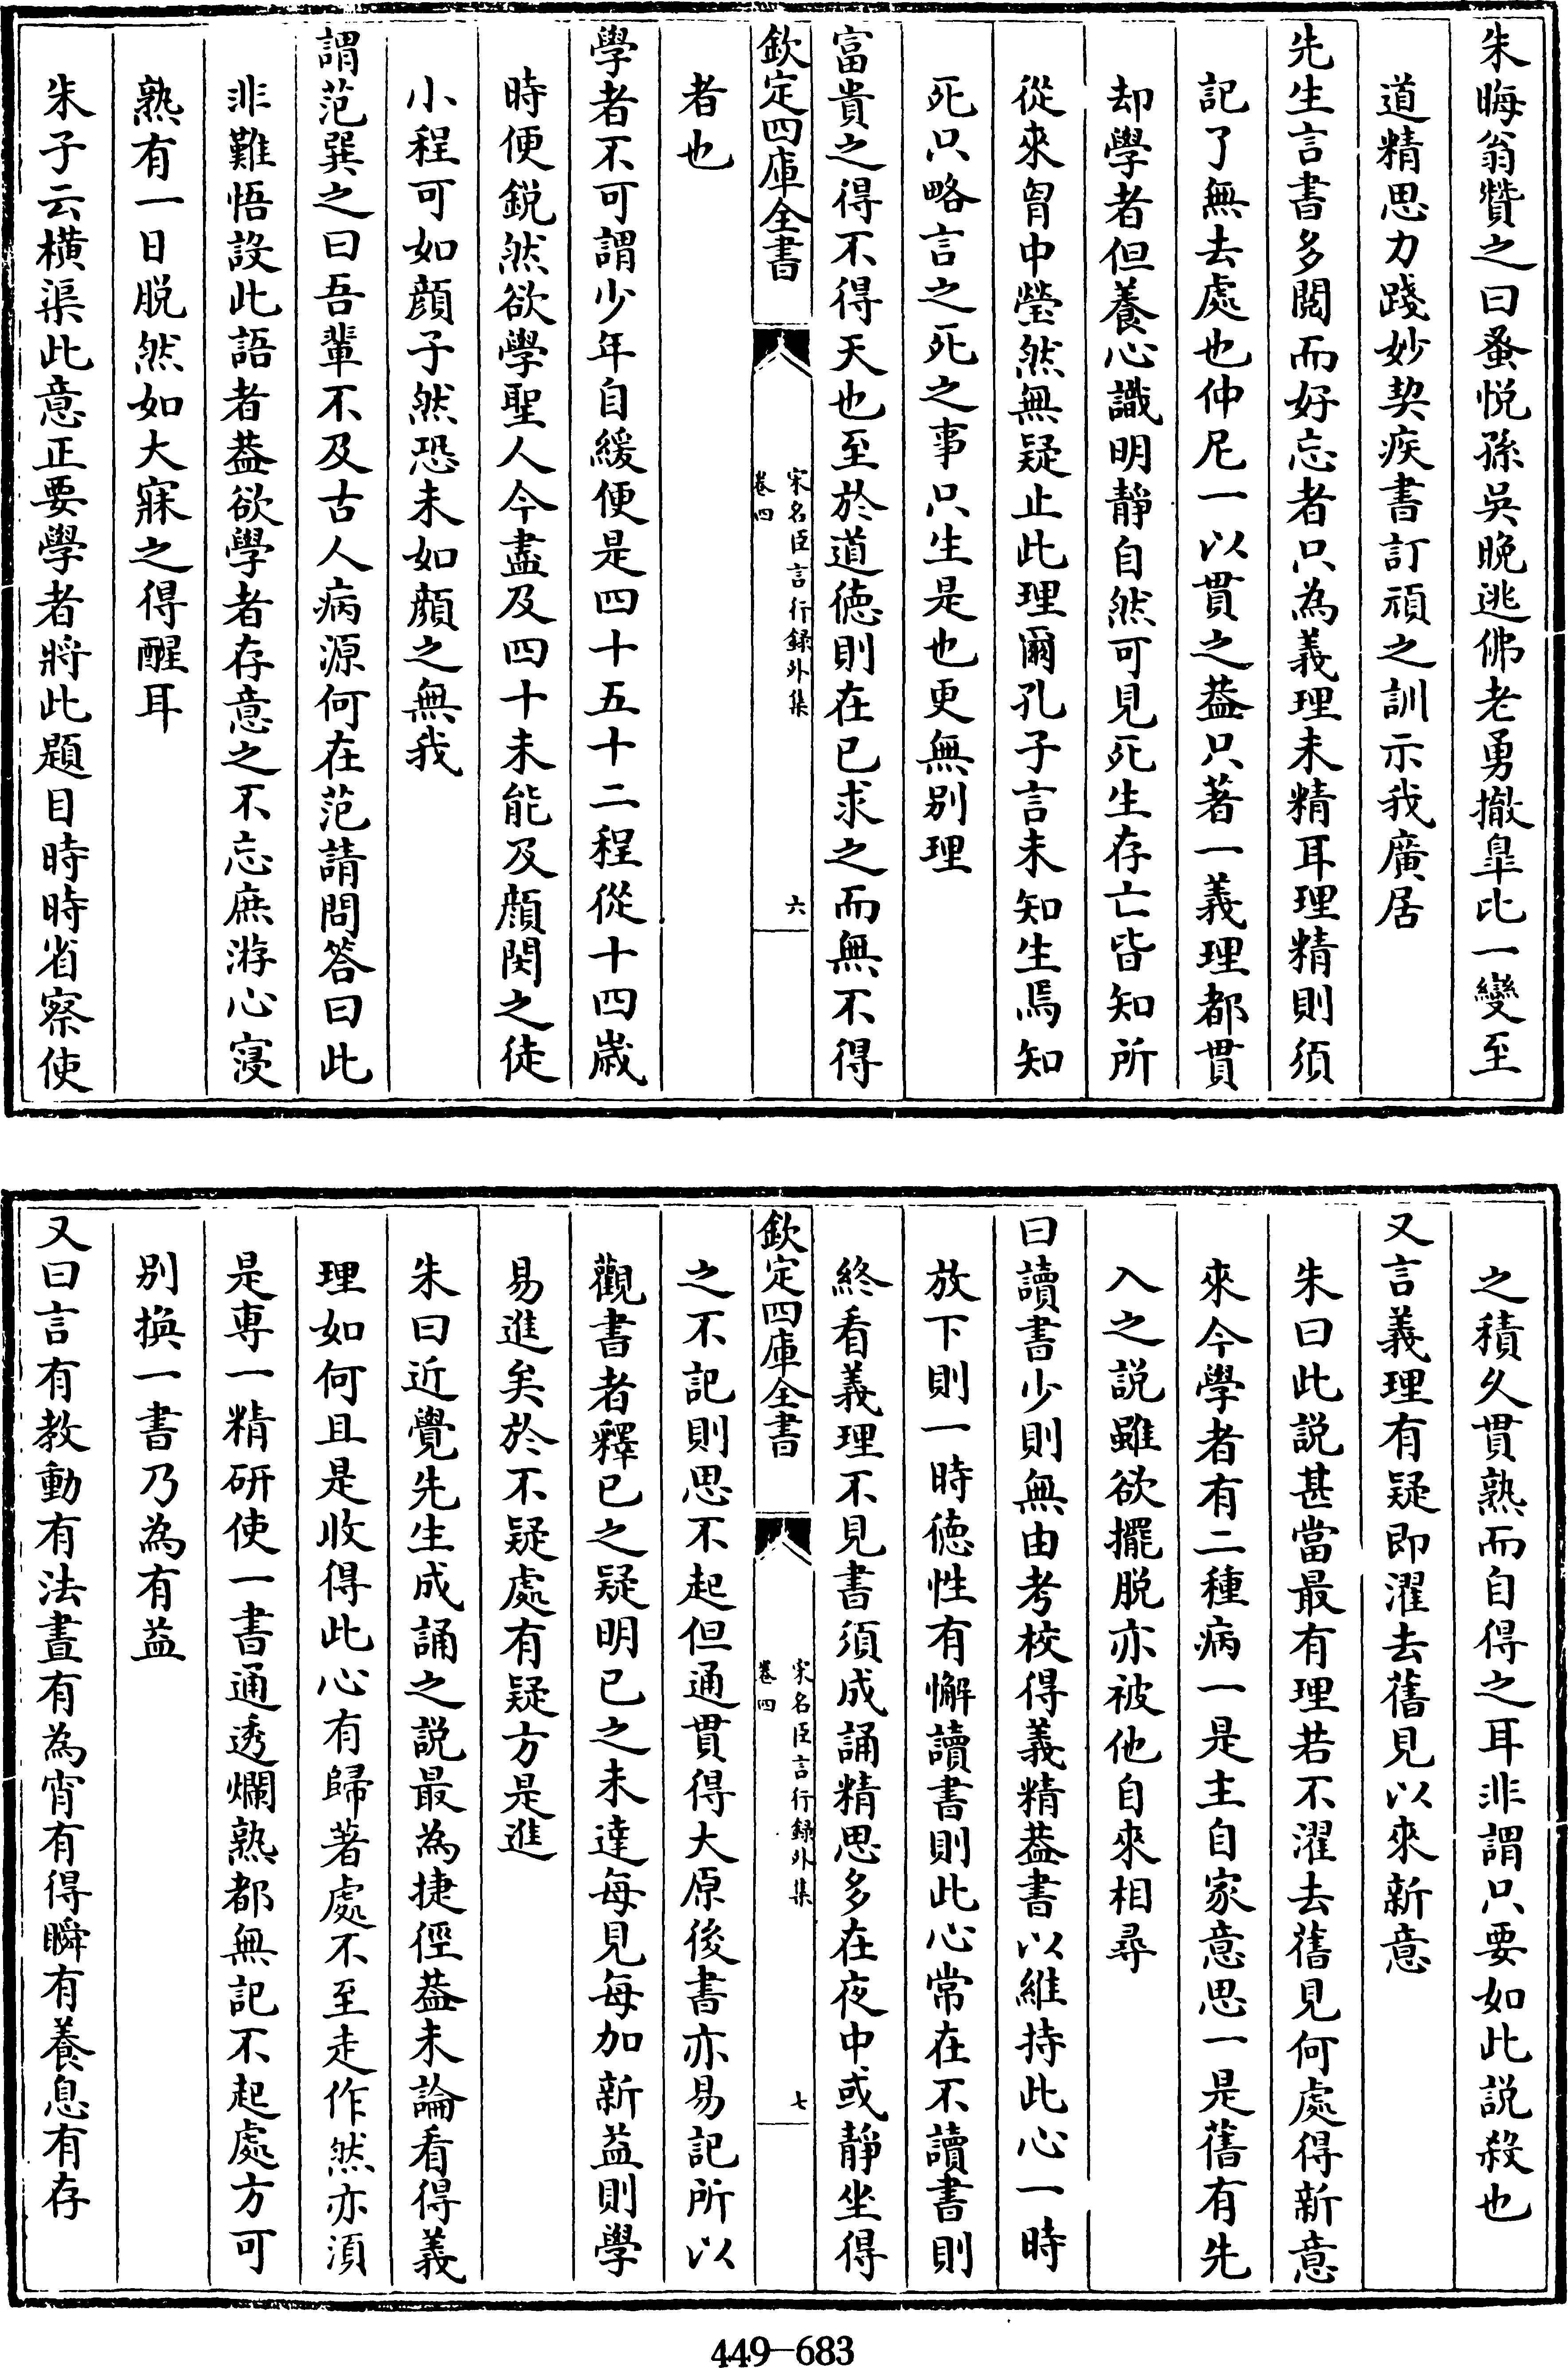 朱晦翁贊之曰蚤悅孫吳晚逃佛老勇撤臯比一變至
道精思力踐妙契疾書訂頑之訓示我廣居
先生言書多閱而好忘者只為義理未精耳理精則須
記了無去處也仲尼一以貫之葢只著一義理都貫
却學者但養心識明靜自然可見死生存亡皆知所
從來胷中瑩然無疑止此理爾孔子言未知生焉知
死只略言之死之事只生是也更無别理
富貴之得不得天也至於道德則在已求之而無不得
欽定四庫全書
宋名臣言行録外集
卷四
六
者也
學者不可謂少年自緩便是四十五十二程從十四嵗
時便鋭然欲學聖人今盡及四十未能及顔閔之徒
小程可如顔子然恐未如顔之無我
謂范巽之曰吾輩不及古人病源何在范請問答曰此
非難悟設此語者葢欲學者存意之不忘庶游心寖
熟有一日脱然如大寐之得醒耳
朱子云横渠此意正要學者將此題目時時省察使
之積久貫熟而自得之耳非謂只要如此說殺也
又言義理有疑即濯去舊見以來新意
朱曰此説甚當最有理若不濯去舊見何處得新意
來今學者有二種病一是主自家意思一是舊有先
入之説雖欲擺脱亦被他自來相尋
曰讀書少則無由考校得義精葢書以維持此心一時
放下則一時德性有懈讀書則此心常在不讀書則
終看義理不見書須成誦精思多在夜中或靜坐得
欽定四庫全書
宋名臣言行録外集
卷四
七
之不記則思不起但通貫得大原後書亦易記所以
觀書者釋已之疑明已之未達每見每加新益則學
易進矣於不疑處有疑方是進
朱曰近覺先生成誦之説最為捷徑葢未論看得義
理如何且是收得此心有歸著處不至走作然亦須
是専一精研使一書通透爛熟都無記不起處方可
别換一書乃為有益
又曰言有教動有法晝有為宵有得瞬有養息有存
449-683